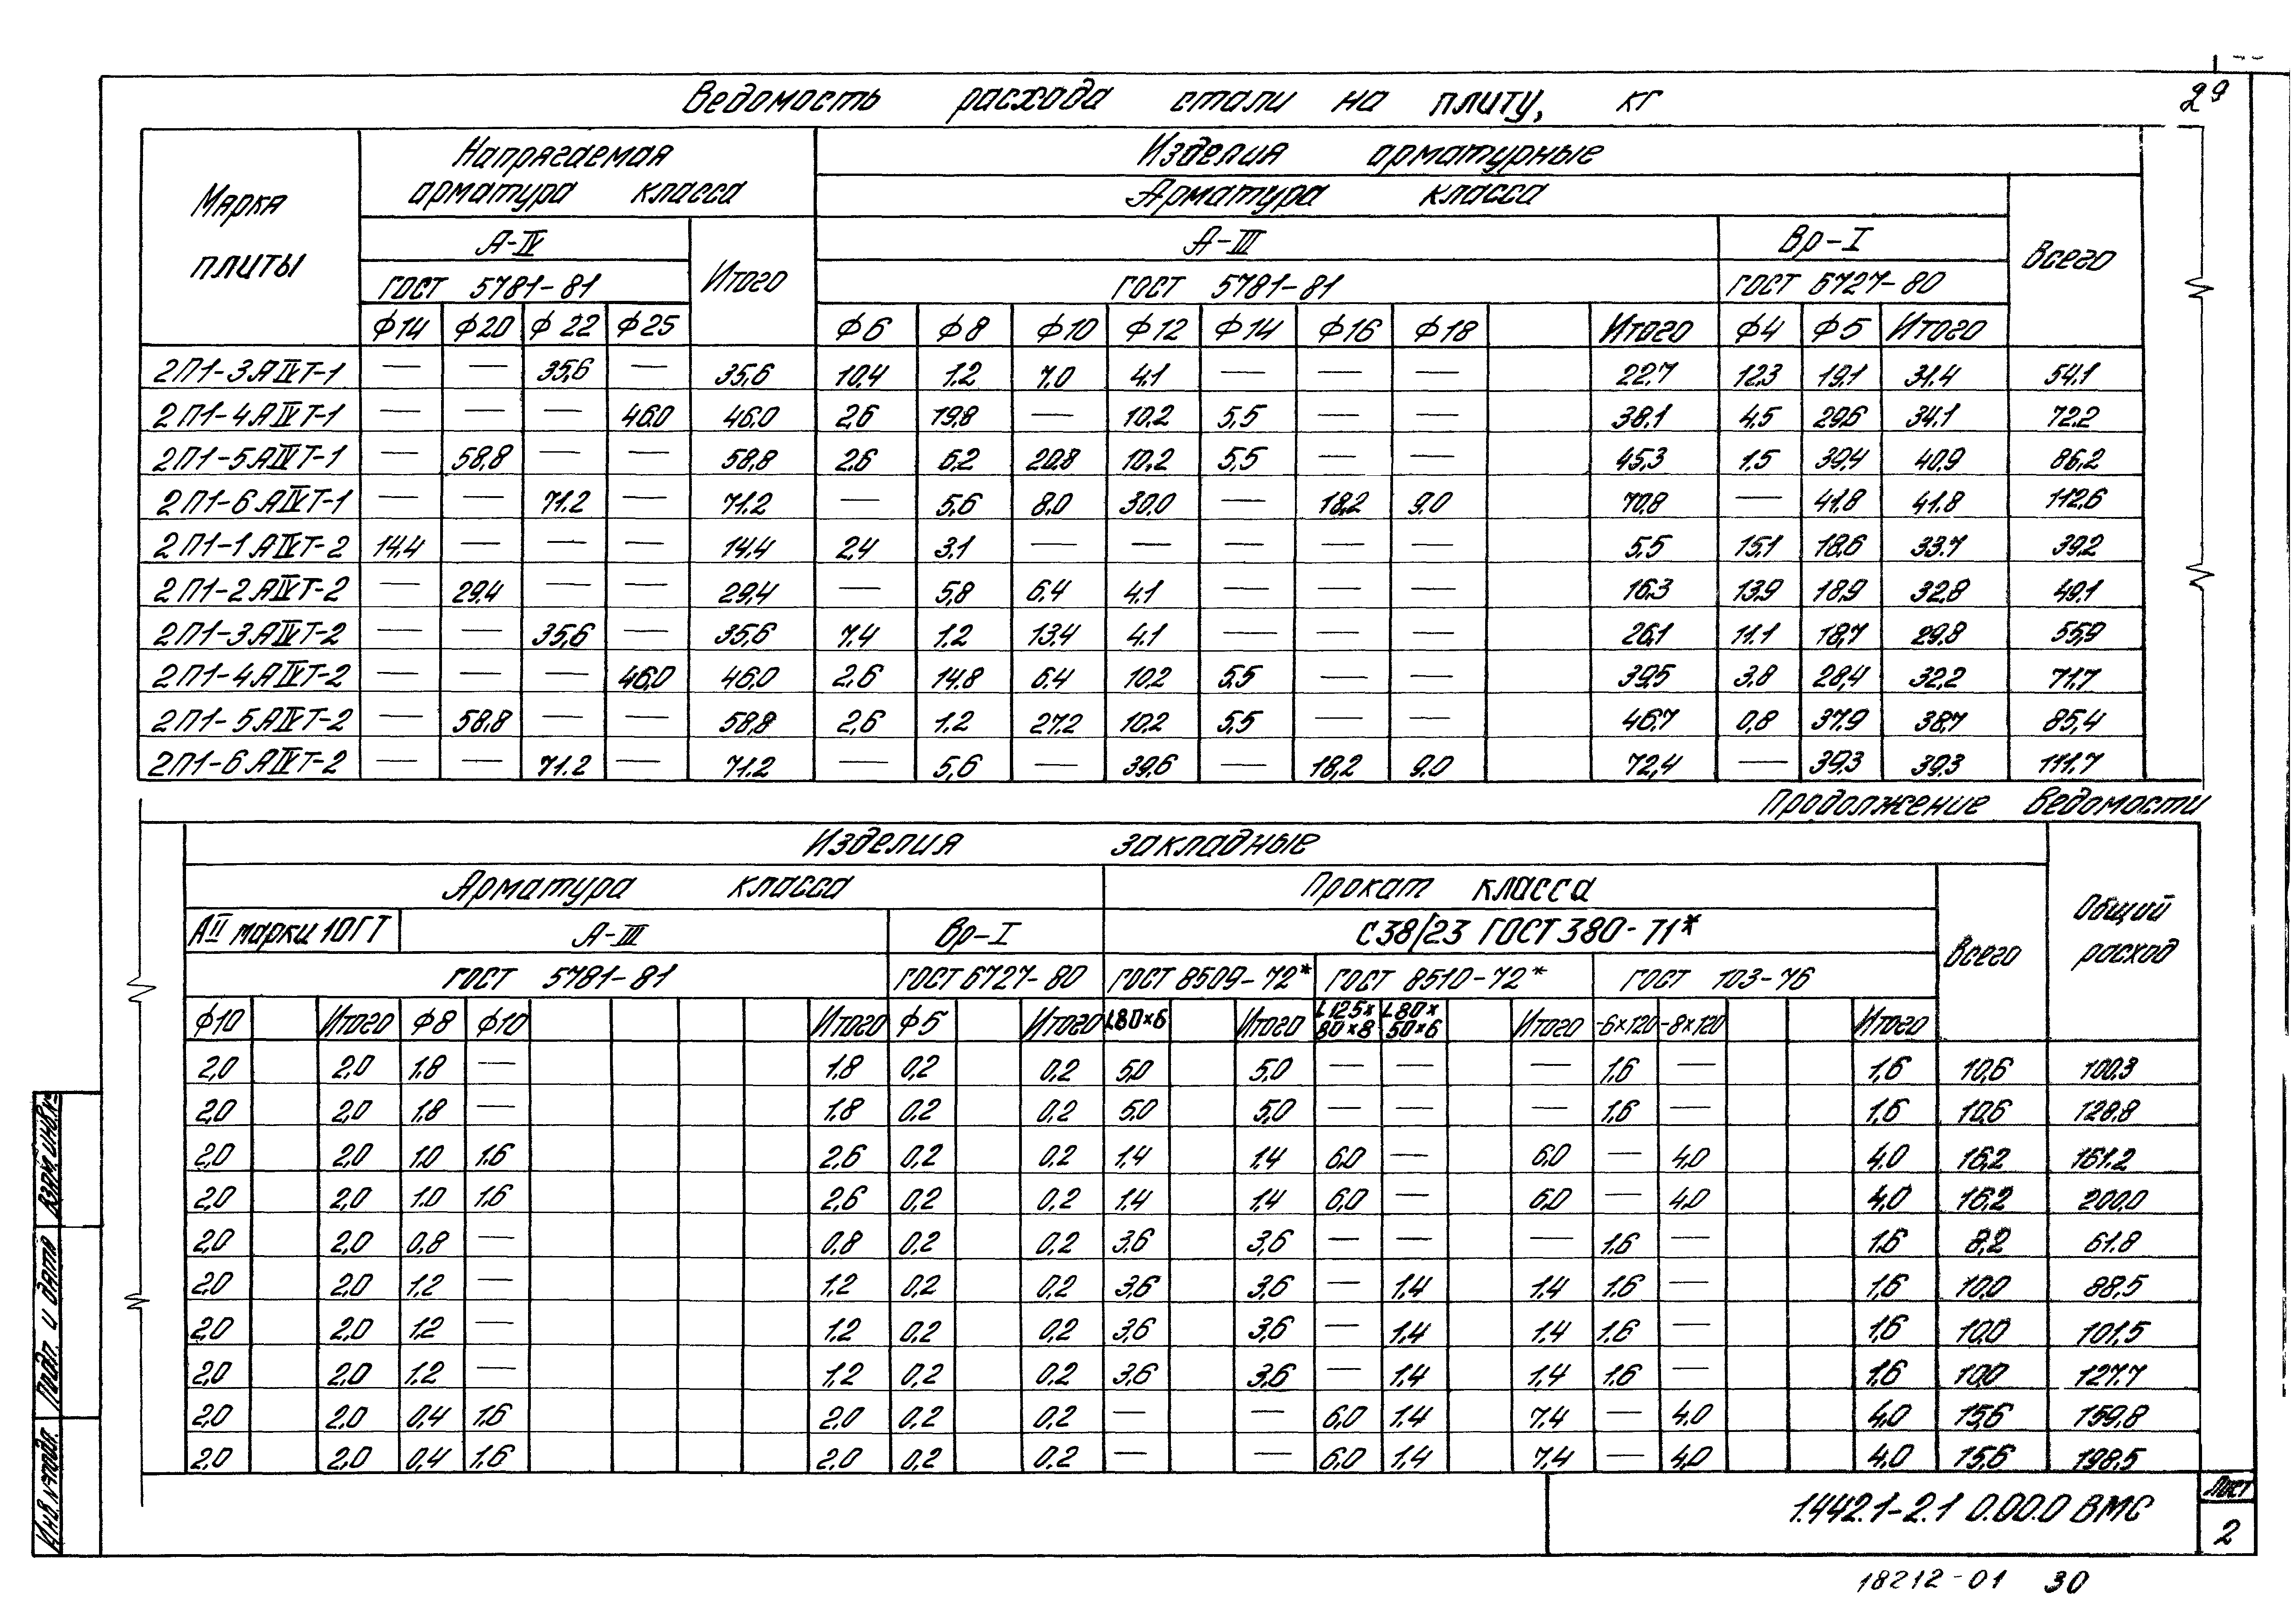 29
Ведомость расхода стали на плиту, кг
Марка плиты
Напрягаемая арматура класса
Изделия арматурные
Арматура класса
А-IV
Итого
А-III
Вр-I
Всего
ГОСТ 5781-81
ГОСТ 5781-81
ГОСТ 6727-80
Ф14 Ф20 Ф22 Ф25 Ф6 Ф8 Ф10 Ф12 Ф14 Ф16 Ф18 Итого Ф4 Ф5 Итого
2П1-3АIVТ-1 — — 35,6 — 35,6 10,4 1.2 7.0 4.1 — — — 22.7 12,3 19,1 31.4 54.1
2П1-4АIVТ-1 — — — 46.0 46.0 2,6 19,8 — 10.2 5,5 — — 38,1 4,5 29,6 34.1 72.2
2П1-5АIVТ-1 — 58,8 — — 58,8 2,6 6.2 20,8 10.2 5,5 — — 45,3 1.5 39,4 40,9 86,2
2П1-6АIVТ-1 — — 71.2 — 71.2 — 5,6 8.0 30,0 — 18,2 9.0 70,8 — 41.8 41.8 112,6
2П1-1АIVТ-2 14,4 — — — 14,4 2,4 3.1 — — — — — 5,5 15,1 18,6 33.7 39,2
2П1-2АIVТ-2 — 29,4 — — 29,4 — 5,8 6.4 4.1 — — — 16,3 13,9 18,9 32,8 49,1
2П1-3АIVТ-2 — — 35,6 — 35,6 7.4 1.2 13,4 4.1 — — — 26,1 11.1 18,7 29,8 55,9
2П1-4АIVТ-2 — — — 46,0 46,0 2,6 14,8 6,4 10,2 5,5 — — 39,5 3,8 28,4 32,2 71,7
2П1-5АIVТ-2 — 58.8 — — 58,8 2,6 1.2 27,2 10,2 5,5 — — 46,7 0,8 37,9 38,7 85,4
2П1-6АIVТ-2 — — 71.2 — 71.2 — 5,6 — 39,6 — 18,2 9.0 72,4 — 39,3 39,3 111.7
Продолжение ведомости
Изделия закладные
Общий расход
Арматура класса
Прокат класса
Всего
АII марки 10ГТ
А-III
Вр-I
С38/23 ГОСТ 380-71*
ГОСТ 5781-81
ГОСТ 6727-80
ГОСТ 8509-72*
ГОСТ 8510-72*
ГОСТ 103-76
Ф10 Итого Ф8 Ф10 Итого Ф5 Итого L80×6 Итого L125×80×8 L80×50×6 Итого -6×120 -8×120 Итого
2,0 2,0 1.8 — 1.8 0,2 0.2 5,0 5,0 — — — 1.6 — 1,6 10,6 100.3
2,0 2,0 1.8 — 1.8 0.2 0.2 5,0 5,0 — — — 1.6 — 1,6 10,6 128.8
2,0 2,0 1.0 1.6 2,6 0.2 0.2 1.4 1.4 6,0 — 6,0 — 4.0 4,0 16,2 161.2
2,0 2,0 1.0 1.6 2,6 0.2 0.2 1.4 1.4 6,0 — 6,0 — 4.0 4,0 16,2 200.0
2,0 2,0 0,8 — 0,8 0.2 0.2 3,6 3,6 — — — 1.6 — 1.6 8,2 61.8
2,0 2,0 1.2 — 1.2 0,2 0.2 3,6 3,6 — 1.4 1.4 1.6 — 1.6 10,0 88,5
2,0 2,0 1.2 — 1.2 0,2 0.2 3,6 3,6 — 1.4 1.4 1.6 — 1,6 10,0 101,5
2,0 2,0 1.2 — 1.2 0,2 0.2 3,6 3,6 — 1.4 1.4 1.6 — 1.6 10,0 127.7
2,0 2,0 0,4 1.6 2.0 0.2 0.2 — — 6,0 1.4 7,4 — 4,0 4,0 15,6 159,8
2,0 2,0 0,4 1.6 2.0 0,2 0.2 — — 6,0 1.4 7,4 — 4,0 4,0 15,6 198,5
Взам. инв. №
Подп. и дата
Инв. № подл.
1.442.1-2.1 0.00.0 ВМС
Лист
2
18212-01 30